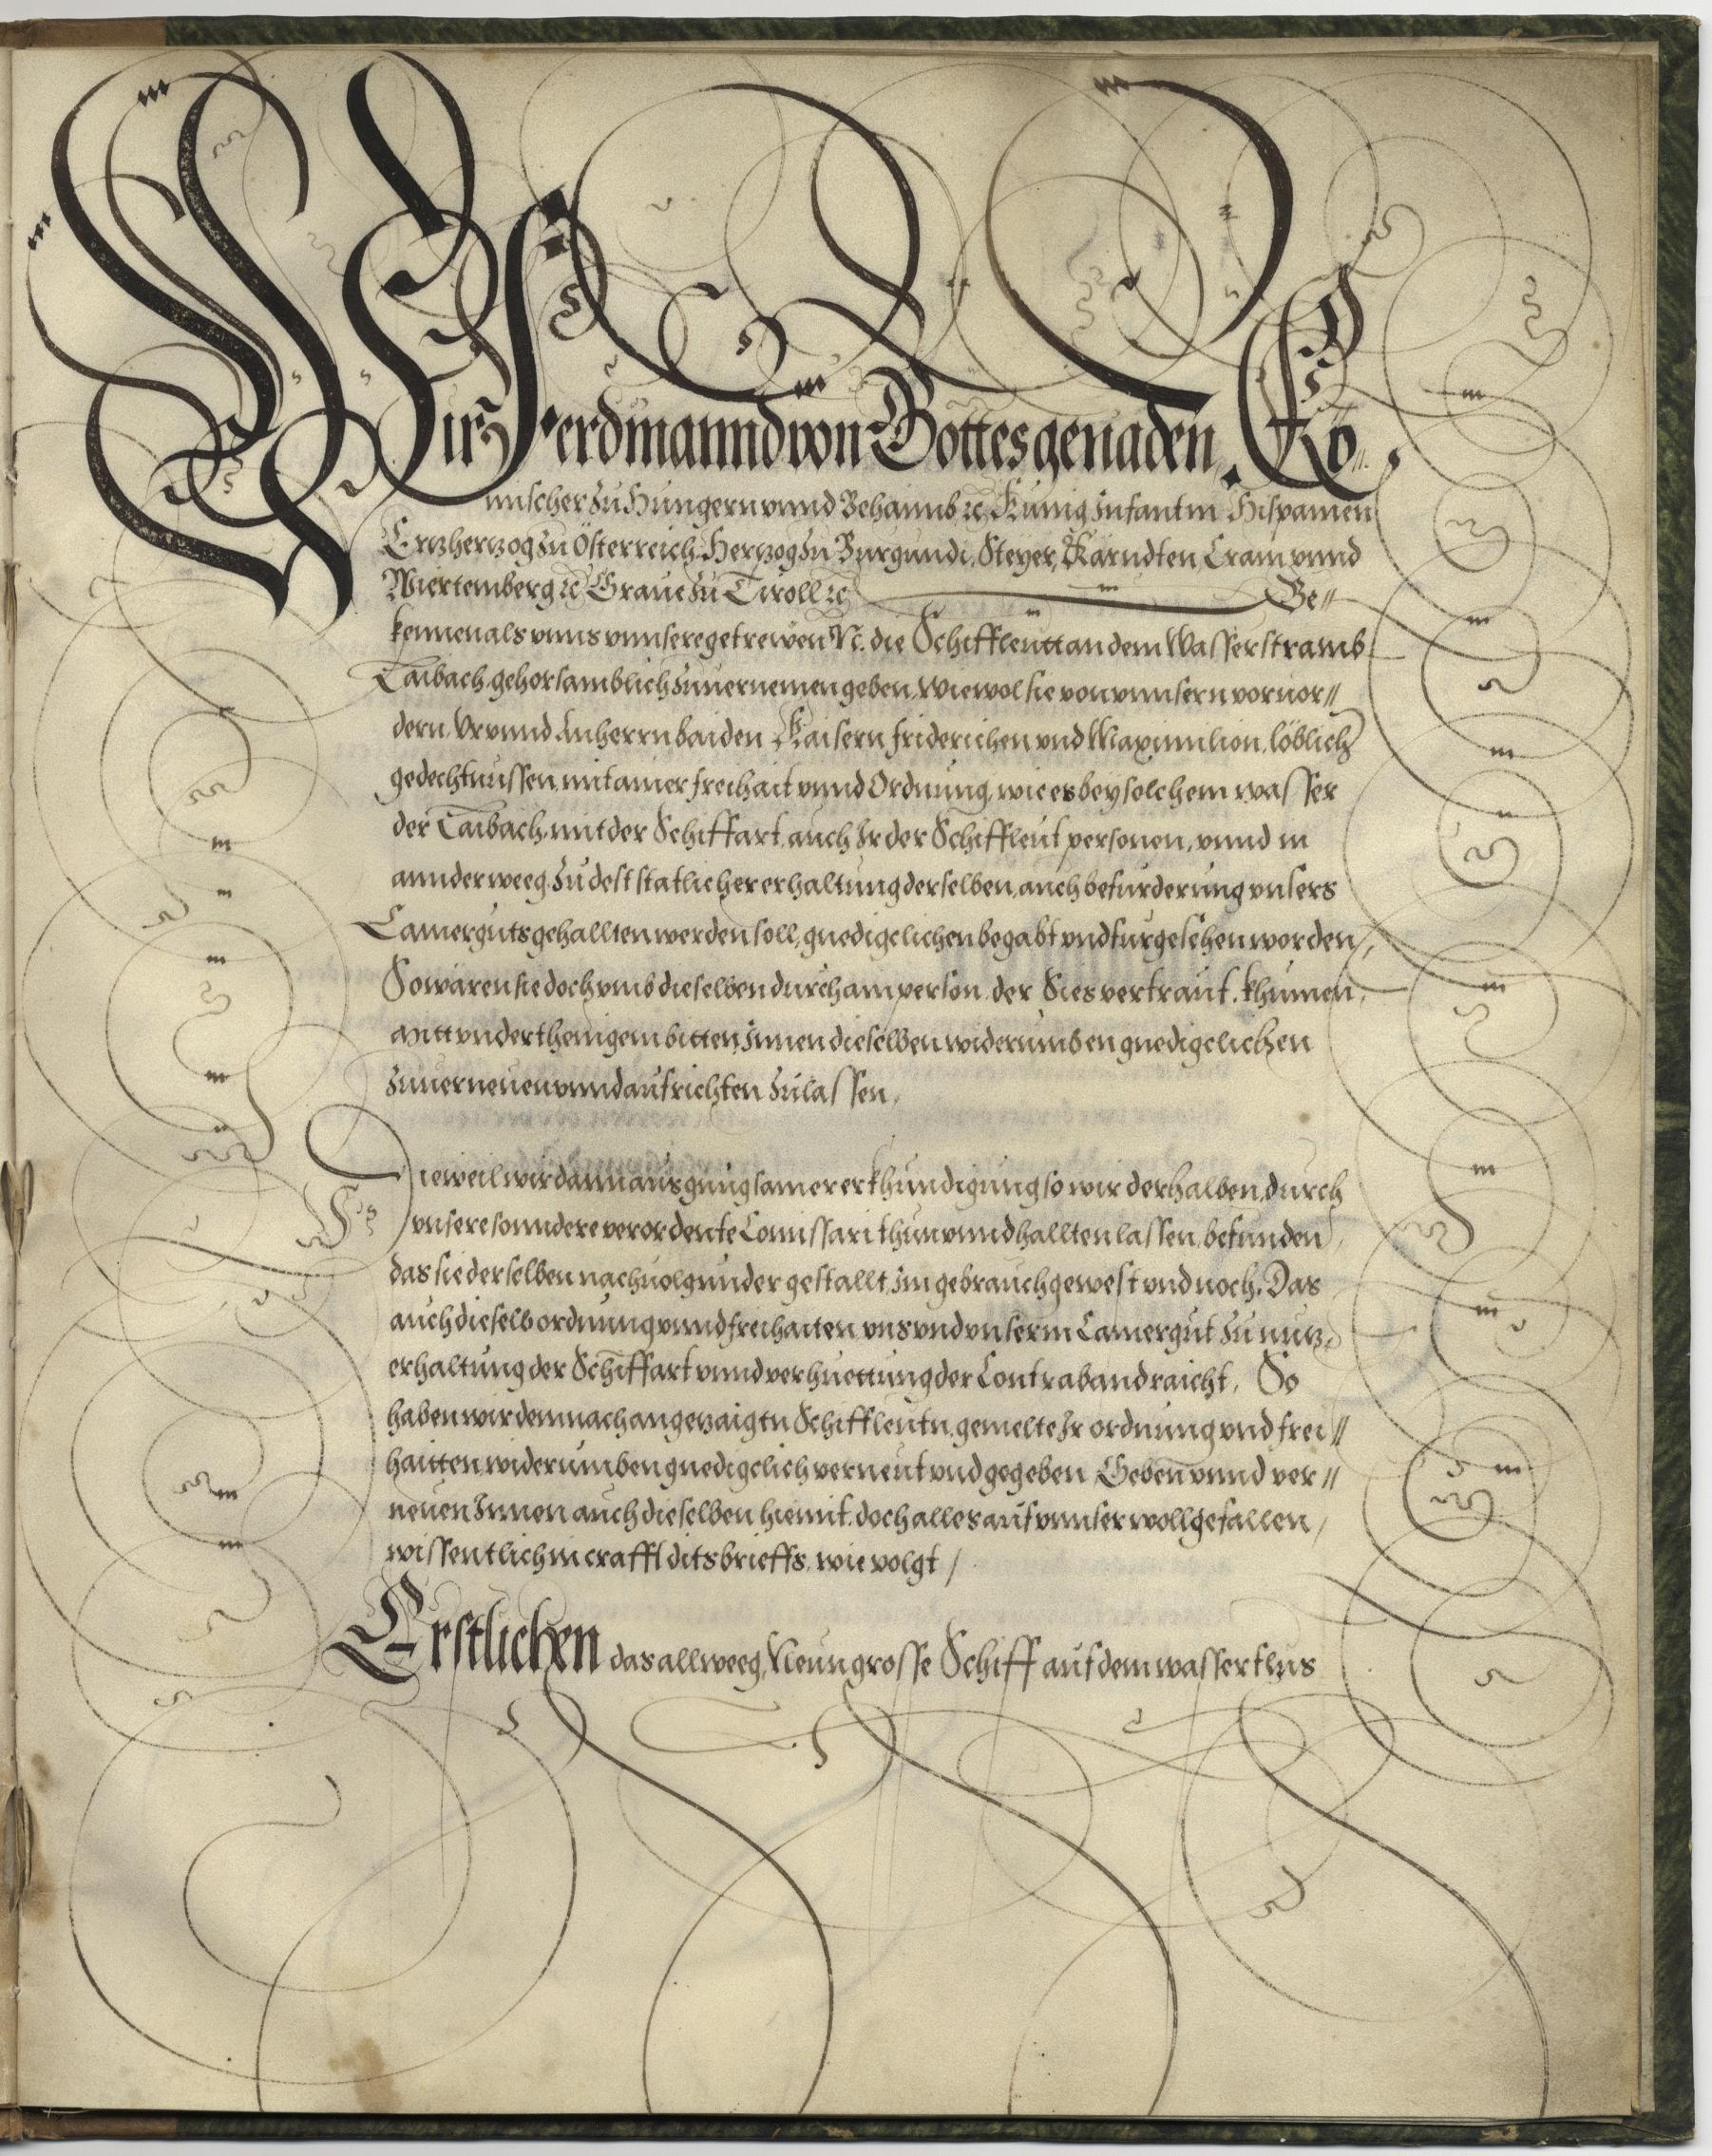 Wir Ferdinannd von Gottes genaden, Rö //
mischer zu Hungern vnnd Behaimb ꝛc Kunig Infant in Hispanien
Ertzhertzog zu Österreich Hertzog zu Burgundi, Steyer, Kärndten, Crain vnnd
Wiertemberg ꝛc Graue zu Tiroll ꝛc Be //
kennen als vnns vnnsere getrewen N. die Schiffleutt an dem Wasserstramb
Laibach, gehorsamblich zuuernemen geben, Wiewol sie von vnnsern voruor //
dern, Vr vnnd Anherrn baiden Kaisern friderichen vnd Maximilion, löblich
gedechtnussen, mit ainer freihait vnnd Ordnung, wie es bey solchem wasser
der Laibach, mit der Schiffart, auch Ir der Schiffleut personen, vnnd in
annder weeg, zu dest statlicher erhaltung derselben, auch befurderung vnsers
Camerguts gehallten werden soll, gnedigclichen begabt vnd fürgesehen worden /
So wären sie doch vmb dieselben durch ain person, der Sies vertraut, khumen,
Mitt vnderthenigem bitten, Innen dieselben widerumben gnedigclichen
zuuerneuen vnnd aufrichten zulassen,
Dieweil wir dann aus gnugsamer erkhundigung so wir derhalben, durch
vnsere sonndere verordente Comissari thun vnnd hallten lassen, befunden,
das sie derselben nachuolgunder gestallt, Im gebrauch gewest vnd noch, Das
auch dieselb ordnung vnnd freihaiten vns vnd vnserm Camergut zu nutz,
erhaltung der Schiffart vnnd verhuettung der Contraband raicht, So
haben wir demnach angetzaigtn Schiffleutn, gemelte Ir ordnung vnd frei //
haitten widerumben gnedigclich verneut vnd gegeben Geben vnnd ver //
neuen Innen auch dieselben hiemit, doch alles auf vnnser wollgefallen /
wissentlich in crafft dits brieffs, wie volgt /
Erstlichen das allweeg, Neun grosse Schiff auf dem wasserflus